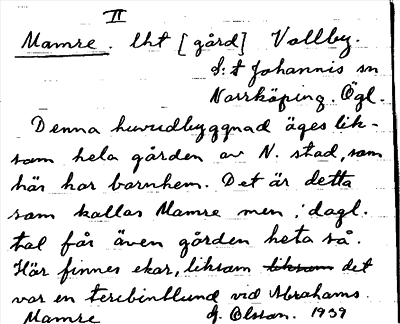 II
Mamre. lht [gård] Vallby.
S:t Johannis sn
Norrköping. Ögl.
Denna huvudbyggnad äges lik-
som hela gården av N. stad, som
här har barnhem. Det är detta
som kallas Mamre men i dagl.
tal får även gården heta så.
Här finnes ekar, liksom liksom det
var en terebintlund vid Abrahams
Mamre G. Olsson. 1939